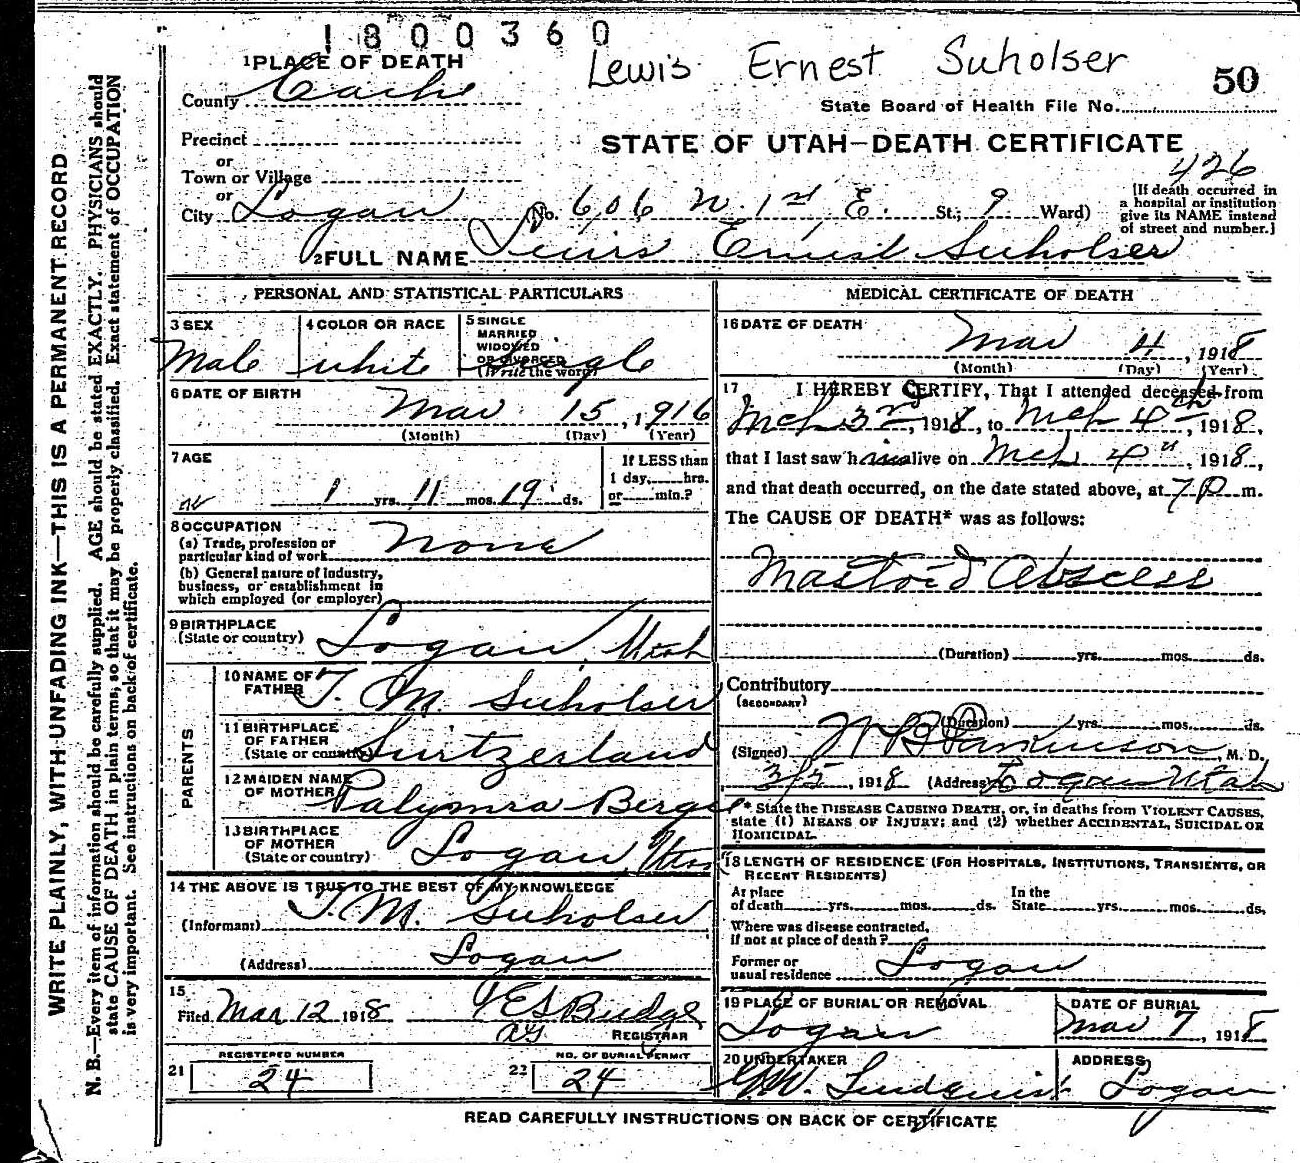 1800360
Lewis Ernest Suholser
50
1 PLACE OF DEATH
County Cache
State Board of Health File No.
STATE OF UTAH—DEATH CERTIFICATE
Precinct
or
Town or Village
or
City Logan
No. 606 N. 1st E. St.; 9 Ward)
426
[If death occurred in
a hospital or institution
give its NAME instead
of street and number.]
2 FULL NAME Lewis Ernest Suholser
PERSONAL AND STATISTICAL PARTICULARS
3 SEX
Male
4 COLOR OR RACE
white
5 SINGLE
MARRIED
WIDOWED
OR DIVORCED
(Write the word)
Single
6 DATE OF BIRTH
Mar 15, 1916
(Month) (Day) (Year)
7 AGE
1 yrs. 11 mos. 19 ds.
If LESS than
1 day, hrs.
or min.?
8 OCCUPATION
(a) Trade, profession or
particular kind of work
None
(b) General nature of industry,
business, or establishment in
which employed (or employer)
9 BIRTHPLACE
(State or country)
Logan, Utah
PARENTS
10 NAME OF
FATHER
T. M. Suholser
11 BIRTHPLACE
OF FATHER
(State or country)
Switzerland
12 MAIDEN NAME
OF MOTHER
Palymra
13 BIRTHPLACE
OF MOTHER
(State or country)
Logan, Utah
14 THE ABOVE IS TRUE TO THE BEST OF MY KNOWLEDGE
(Informant) T. M. Suholser
(Address) Logan
15
Filed Mar 12 1918
Budge
REGISTRAR
REGISTERED NUMBER
21 24
NO. OF BURIAL PERMIT
22 24
MEDICAL CERTIFICATE OF DEATH
16 DATE OF DEATH
Mar 4, 1918
(Month) (Day) (Year)
17 I HEREBY CERTIFY, That I attended deceased from
Mch 3rd, 1918, to Mch 4th, 1918,
that I last saw him alive on Mch 4th, 1918,
and that death occurred, on the date stated above, at 7 p m.
The CAUSE OF DEATH* was as follows:
Mastoid Abscess
(Duration) yrs. mos. ds.
Contributory
(SECONDARY)
(Duration) yrs. mos. ds.
(Signed) W B Parkinson, M. D.
3/5, 1918 (Address) Logan Utah
* State the DISEASE CAUSING DEATH, or, in deaths from VIOLENT CAUSES,
state (1) MEANS OF INJURY; and (2) whether ACCIDENTAL, SUICIDAL OR
HOMICIDAL.
18 LENGTH OF RESIDENCE (FOR HOSPITALS, INSTITUTIONS, TRANSIENTS, OR
RECENT RESIDENTS)
At place
of death yrs. mos. ds.
In the
State yrs. mos. ds.
Where was disease contracted,
if not at place of death?
Former or
usual residence Logan
19 PLACE OF BURIAL OR REMOVAL
Logan
DATE OF BURIAL
Mar 7, 1918
20 UNDERTAKER
Lindquist
ADDRESS
Logan
READ CAREFULLY INSTRUCTIONS ON BACK OF CERTIFICATE
WRITE PLAINLY, WITH UNFADING INK—THIS IS A PERMANENT RECORD
N. B.—Every item of information should be carefully supplied. AGE should be stated EXACTLY. PHYSICIANS should
state CAUSE OF DEATH in plain terms, so that it may be properly classified. Exact statement of OCCUPATION
is very important. See instructions on back of certificate.